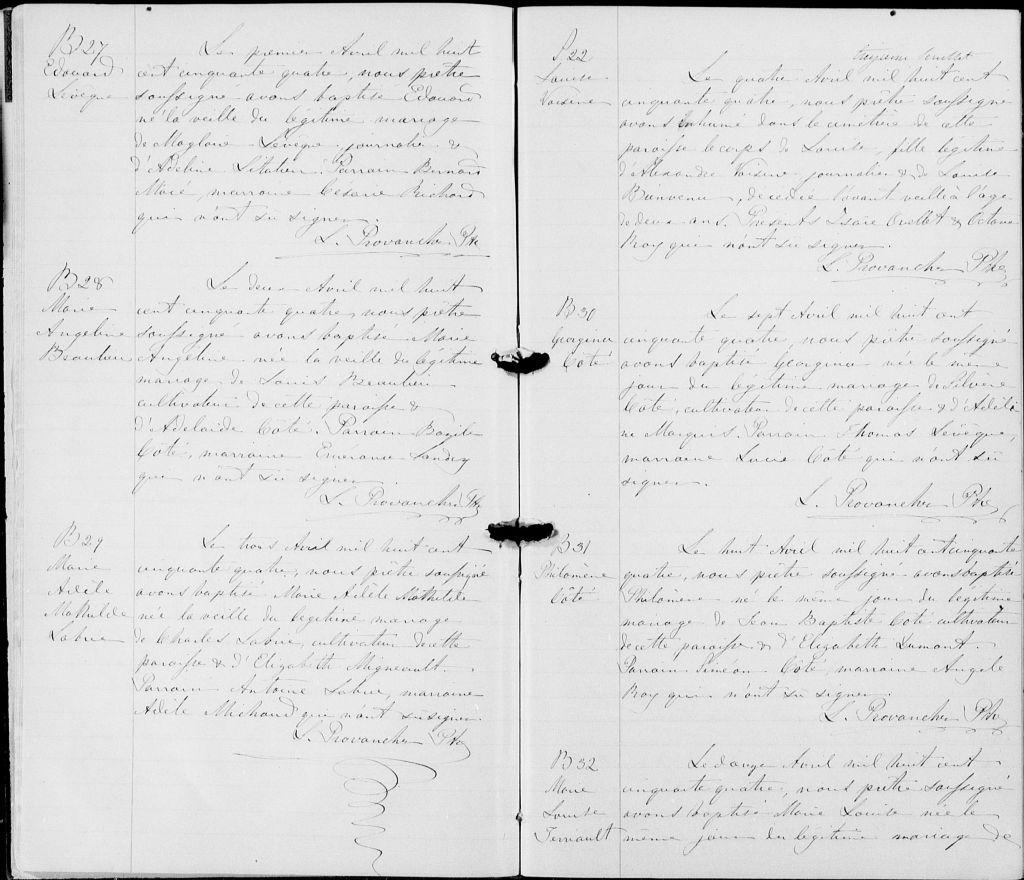 B 27
Edouard
Lévèque
Le premier Avril mil huit
cent cinquante quatre, nous prêtre
soussigné avons baptisé Edouard
né la veille du légitime mariage
de Magloire Lévèque journalier &
d'Adeline L'Italien. Parrain Bernard
Moré, marraine Césarie Richard
qui n'ont sû signer.
L. Provancher Ptre
B 28
Marie
Angéline
Beaulieu
Le deux Avril mil huit
cent cinquante quatre, nous prêtre
soussigné avons baptisé Marie
Angéline née la veille du légitime
mariage de Louis Beaulieu
cultivateur de cette paroisse &
d'Adelaide Côté. Parrain Bazile
Côté, marraine Emerance Landry
qui n'ont sû signer.
L. Provancher Ptre
B 29
Marie
Adèle
Mathilde
Labrie
Le trois Avril mil huit cent
cinquante quatre, nous prêtre soussigné
avons baptisé Marie Adèle Mathilde
née la veille du légitime mariage
de Charles Labrie, cultivateur de cette
paroisse & d'Elizabeth Migneault.
Parrain Antoine Labrie, marraine
Adèle Michaud qui n'ont sû signer.
L. Provancher Ptre
S 22
Louise
Voisine
troisième feuillet
Le quatre Avril mil huit cent
cinquante quatre, nous prêtre soussigné
avons inhumé dans le cimetière de cette
paroisse le corps de Louise, fille légitime
d'Alexandre Voisine journalier & de Louise
Bienvenu, décédée l'avant veille à l'age
de deux ans. Présents Isaïe Ouellet & Octave
Roy qui n'ont sû signer.
L. Provancher Ptre
B 30
Georgina
Côté
Le sept Avril mil huit cent
cinquante quatre, nous prêtre soussigné
avons baptisé Georgina née le même
jour du légitime mariage de Silvère
Côté, cultivateur de cette paroisse & d'Adéli
ne Marquis. Parrain Thomas Lévèque,
marraine Lucie Côté qui n'ont sû
signer.
L. Provancher Ptre
B 31
Philomène
Côté
Le huit Avril mil huit cent cinquante
quatre, nous prêtre soussigné avons baptisé
Philomène né le même jour du légitime
mariage de Jean Baptiste Côté cultivateur
de cette paroisse & d'Elizabeth Dumont.
Parrain Siméon Côté, marraine Angèle
Roy qui n'ont sû signer.
L. Provancher Ptre
B 32
Marie
Louise
Terriault
Le douze Avril mil huit cent
cinquante quatre, nous prêtre soussigné
avons baptisé Marie Louise née le
même jour du légitime mariage de